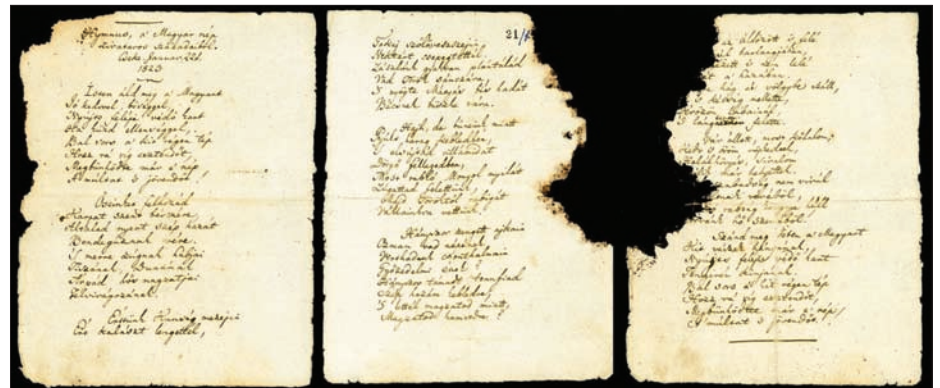 Hymnus, a' Magyar nép
zivataros századaiból.
Cseke, Januar. 22d.
1823
Isten áldd meg a' Magyart
Jó kedvvel, bőséggel,
Nyújts feléje védő kart
Ha küzd ellenséggel,
Bal sors a' kit régen tép
Hozz rá víg esztendőt,
Megbűnhődte már e' nép
A' múltat 's jövendőt!
Őseinket felhozád
Kárpát szent bérczére,
Általad nyert szép hazát
Bendegúznak vére.
'S merre zúgnak habjai
Tiszának, Dunának
Árpád hős magzatjai
Felvirágozának.
Értünk Kunság mezejin
Ért kalászt lengettél,
21/
Tokaj szőlővesszein
Nektárt csepegtettél.
Zászlónk gyakran plántálád
Vad Török sánczára,
'S nyögte Mátyás bús hadát
Bécsnek büszke vára.
Hajh, de bűneink miatt
Gyúlt harag kebledben,
'S elsújtád villámidat
Dörgő fellegedben,
Most rabló Mongol nyilát
Zúgattad felettünk,
Majd Töröktől rabigát
Vállainkra vettünk.
Hányszor zengett ajkain
Ozman vad népének,
Vert hadunk csonthalmain
Győzedelmi ének!
Hányszor támadt tenfiad
Szép hazám kebledre,
'S lettél magzatod miatt,
Magzatod hamvvedre!
az üldözött 's felé
barlangjában,
nézett 's nem lelé
a' hazában.
hág és völgybe száll,
's kétség mellette,
Vérözön lábainál,
'S lángtenger felette.
Vár állott, most kőhalom;
Kedv 's öröm röpkedtek,
Halálhörgés, siralom
már helyettek.
szabadság nem virúl
véréből,
rabság könnye hull
hő szeméből.
Szánd meg Isten a' Magyart
Kit vészek hányának,
Nyújts feléje védő kart
Tengerén kínjának.
Bal sors a' kit régen tép
Hozz rá víg esztendőt,
Megbűnhődte már e' nép
A' múltat 's jövendőt.